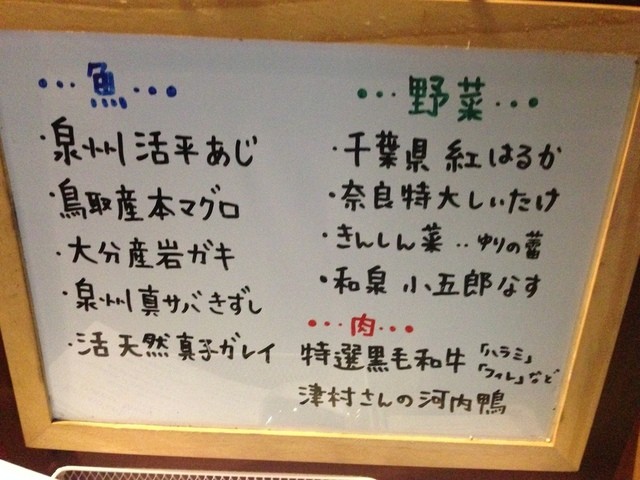 ...魚...
・泉州活平あじ
・鳥取産本マグロ
・大分産岩ガキ
・泉州真サバきずし
・活天然真子ガレイ
...野菜...
・千葉県紅はるか
・奈良特大しいたけ
・きんしん菜‥ゆりの蕾
・和泉小五郎なす
...肉...
特選黒毛和牛「ハラミ」
「フィレ」など
津村さんの河内鴨